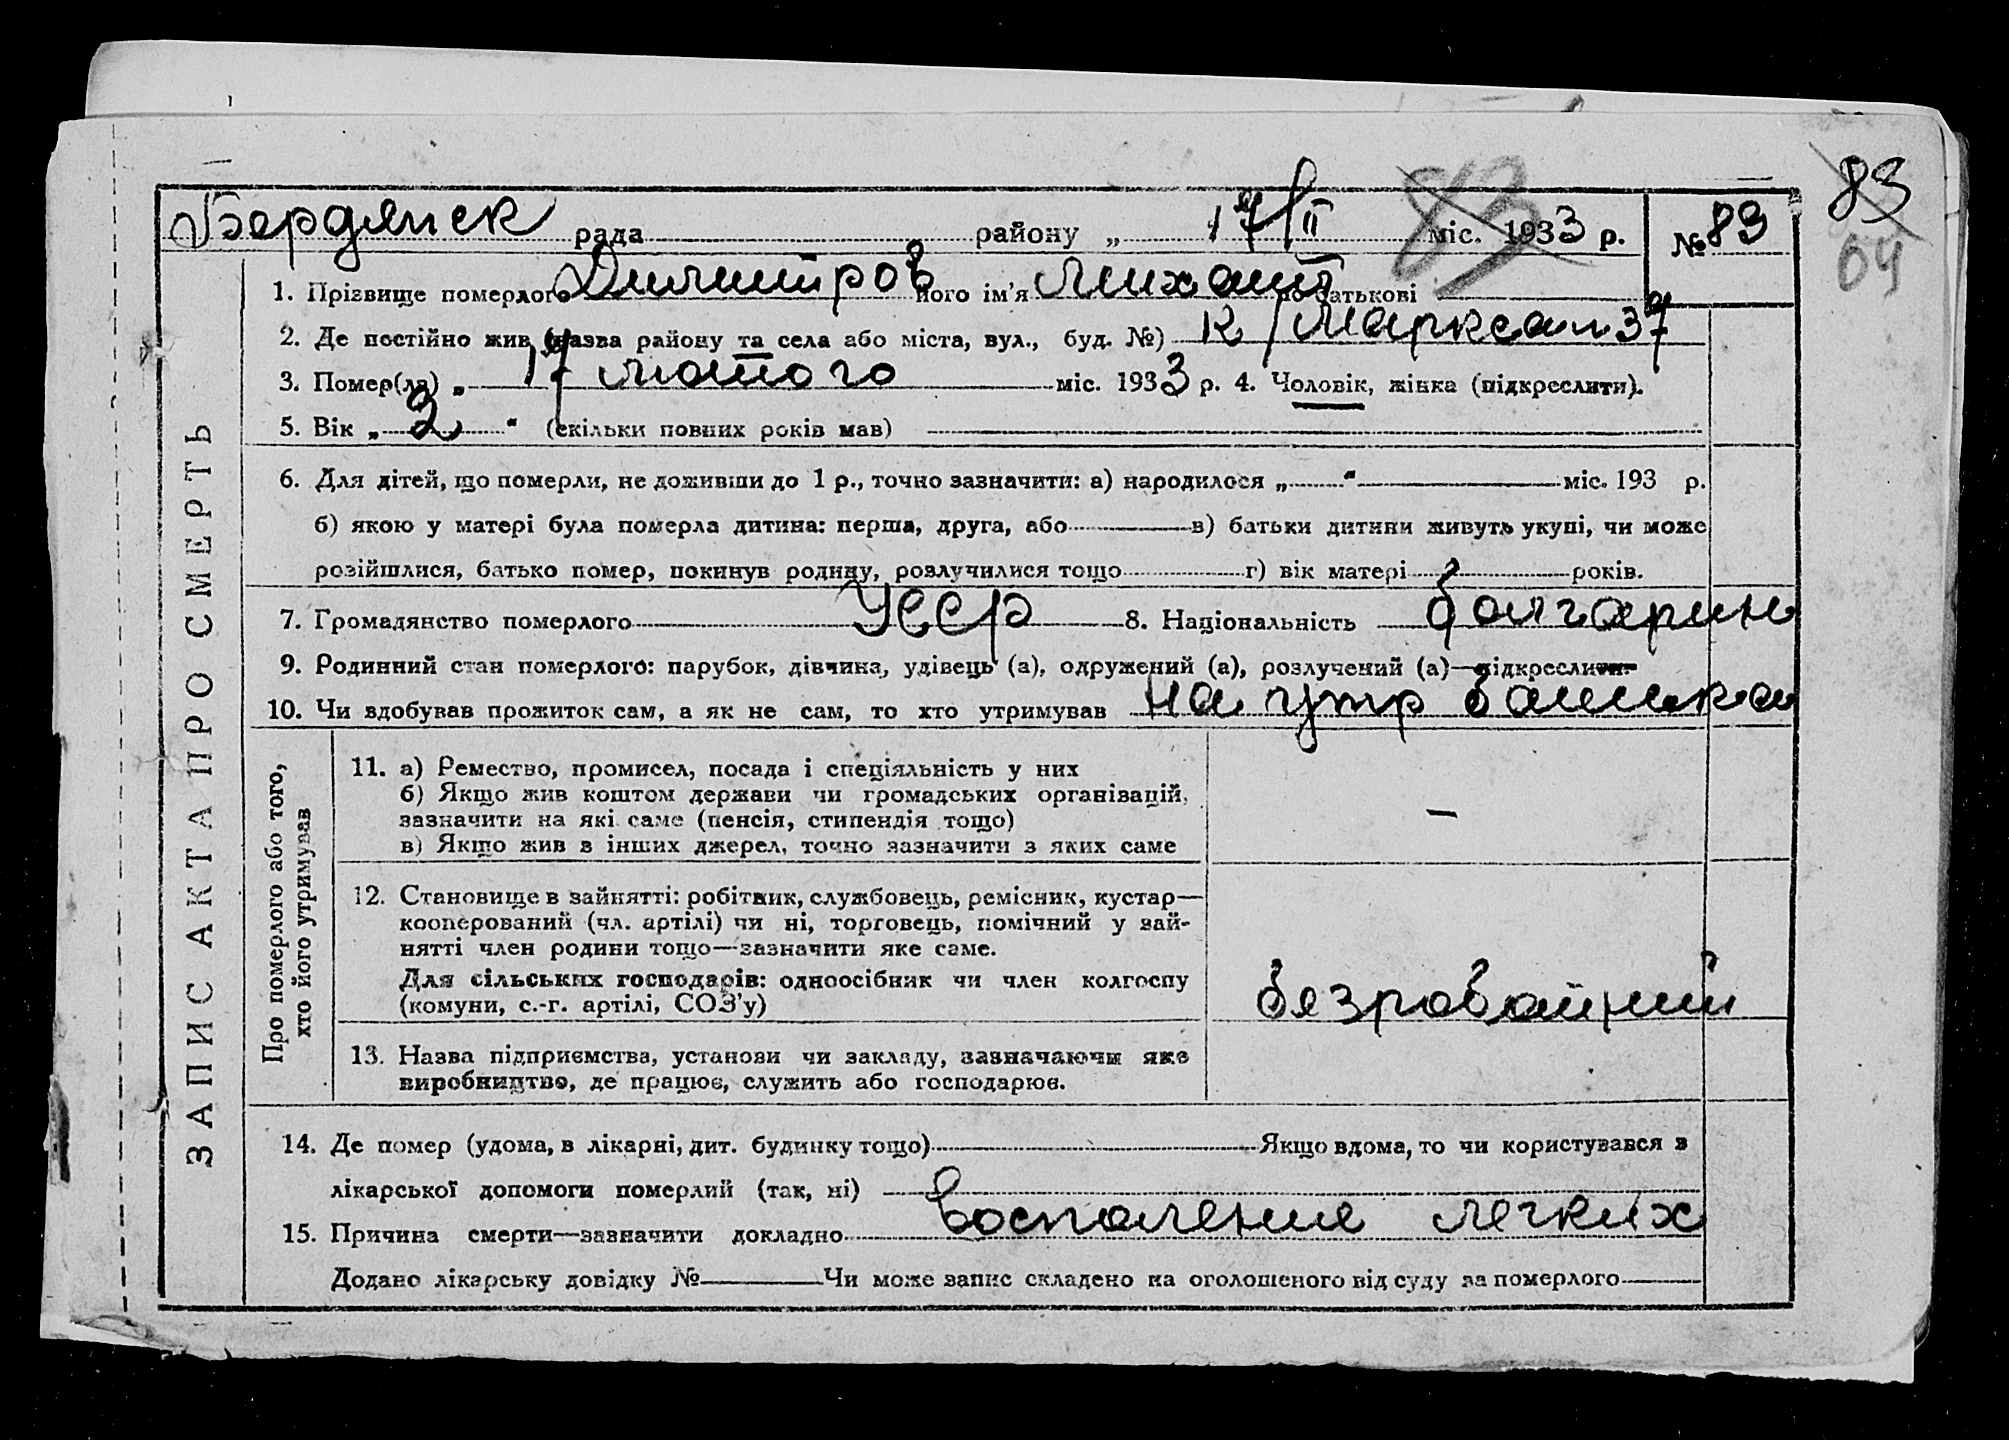 83
64
Бердянск рада району „ 17/II міс. 1933 р. № 83
83
1. Прізвище померлого Димитров його ім'я Михаил по батькові
2. Де постійно жив (назва району та села або міста, вул., буд. №) К/Маркса 37
3. Помер(ла) „ 17 лютого міс. 1933 р. 4. Чоловік, жінка (підкреслити).
5. Вік „ 2 " (скільки повних років мав)
6. Для дітей, що померли, не доживши до 1 р., точно зазначити: а) народилося „ " міс. 193 р.
б) якою у матері була померла дитина: перша, друга, або в) батьки дитини живуть укупі, чи може
розійшлися, батько помер, покинув родину, розлучилися тощо г) вік матері років.
7. Громадянство померлого УССР 8. Національність болгарин
9. Родинний стан померлого: парубок, дівчина, удівець (а), одружений (а), розлучений (а)—підкреслити.
10. Чи здобував прожиток сам, а як не сам, то хто утримував на утр батька
ЗАПИС АКТА ПРО СМЕРТЬ
Про померлого або того,
хто його утримував
11. а) Ремество, промисел, посада і спеціяльність у них
б) Якщо жив коштом держави чи громадських організацій,
зазначити на які саме (пенсія, стипендія тощо)
в) Якщо жив з інших джерел, точно зазначити з яких саме
—
12. Становище в зайнятті: робітник, службовець, ремісник, кустар—
кооперований (чл. артілі) чи ні, торговець, помічний у зай-
нятті член родини тощо—зазначити яке саме.
Для сільських господарів: одноосібник чи член колгоспу
(комуни, с.-г. артілі, СОЗ'у)
13. Назва підприємства, установи чи закладу, зазначаючи яке
виробництво, де працює, служить або господарює.
14. Де помер (удома, в лікарні, дит. будинку тощо) Якщо вдома, то чи користувався з
лікарської допомоги померлий (так, ні)
15. Причина смерти—зазначити докладно Воспаление легких
Додано лікарську довідку № Чи може запис складено на оголошеного від суду за померлого